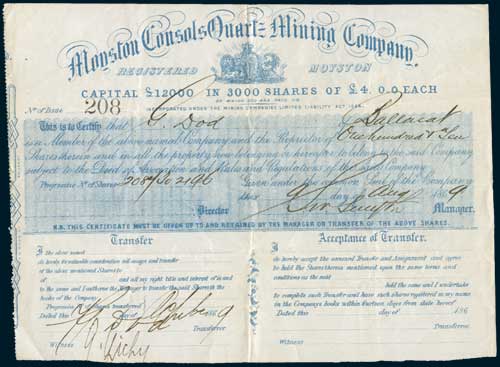 Moyston Consols Quartz Mining Company.
REGISTERED MOYSTON
CAPITAL £12000 IN 3000 SHARES OF £4.0.0 EACH
INCORPORATED UNDER THE MINING COMPANIES LIMITED LIABILITY ACT 1864.
No. of Scrip 208
This is to Certify that G. Dod of Ballarat
is a Member of the above named Company and the Proprietor of One hundred & Ten
Shares therein and in all the property now belonging or hereafter to belong to the said Company
subject to the Deed of and Rules and Regulations of the said Company
Progressive No. of Shares 2087 to 2196 Given under the Common Seal of the Company
this day of Aug 1869
Director Manager.
N.B. THIS CERTIFICATE MUST BE GIVEN UP TO AND RETAINED BY THE MANAGER ON TRANSFER OF THE ABOVE SHARES.
Transfer
I the above named
do hereby for valuable consideration sell assign and transfer
of the above mentioned Shares to
of and all my right title and interest of in and
to the same and I authorise the to transfer the said Shares in the
books of the Company
Progressive Nos. transferred
Dated this day of 1869
G Dod Transferror
Witness
Acceptance of Transfer.
I
of
do hereby accept the annexed Transfer and Assignment and agree
to hold the Shares therein mentioned upon the same terms and
conditions as the said
held the same and I undertake
to complete such Transfer and have such shares registered in my name
on the Company's books within fourteen days from date hereof
Dated this day of 186
Transferree
Witness